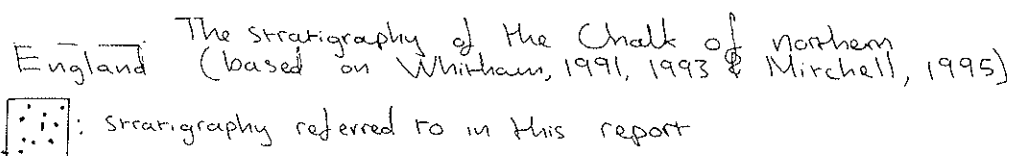 The stratigraphy of the Chalk of northern
England (based on Whitham, 1991, 1993 & Mitchell, 1995)
: stratigraphy referred to in this report